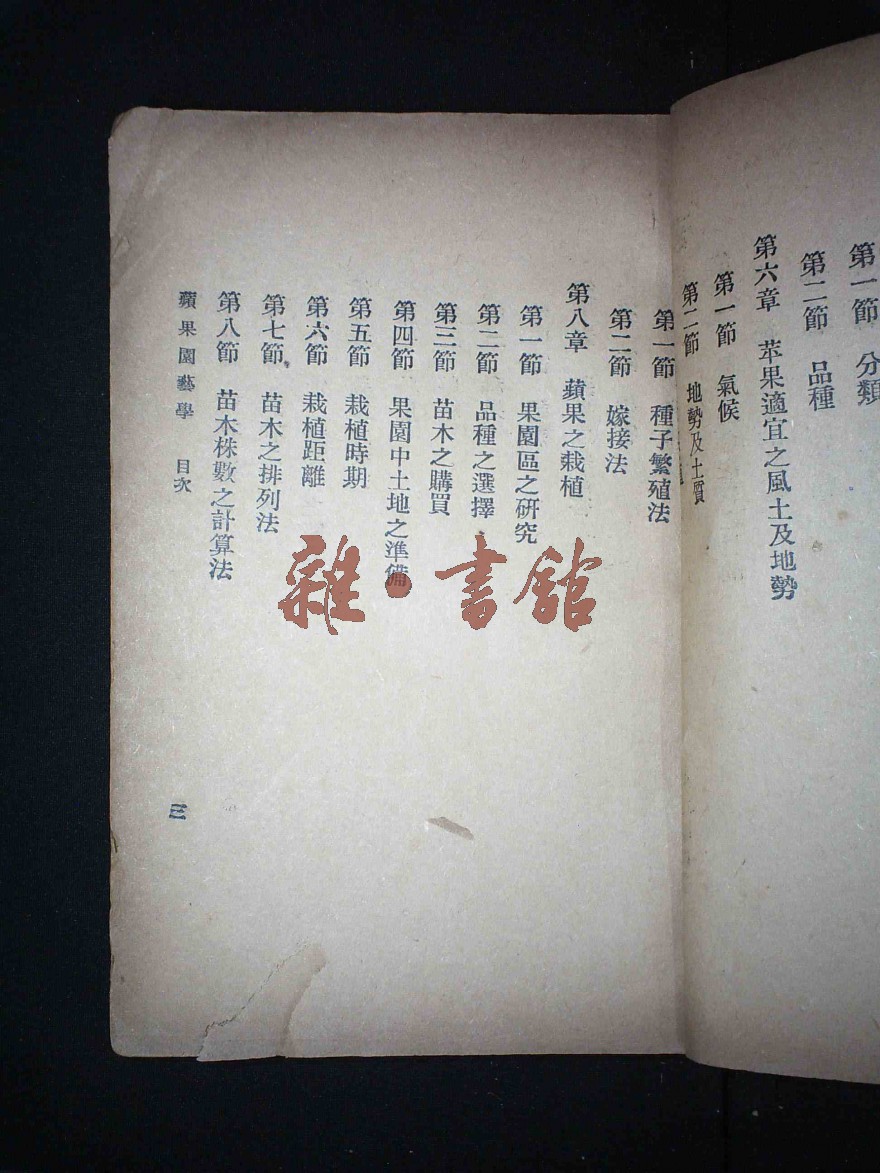 第一節　分類
第二節　品種
第六章　苹果適宜之風土及地勢
第一節　氣候
第二節　地勢及土質
第一節　種子繁殖法
第二節　嫁接法
第八章　蘋果之栽植
第一節　果園區之研究
第二節　品種之選擇
第三節　苗木之購買
第四節　果園中土地之準備
第五節　栽植時期
第六節　栽植距離
第七節　苗木之排列法
第八節　苗木株數之計算法
蘋果園藝學　目次
三
雜·書館